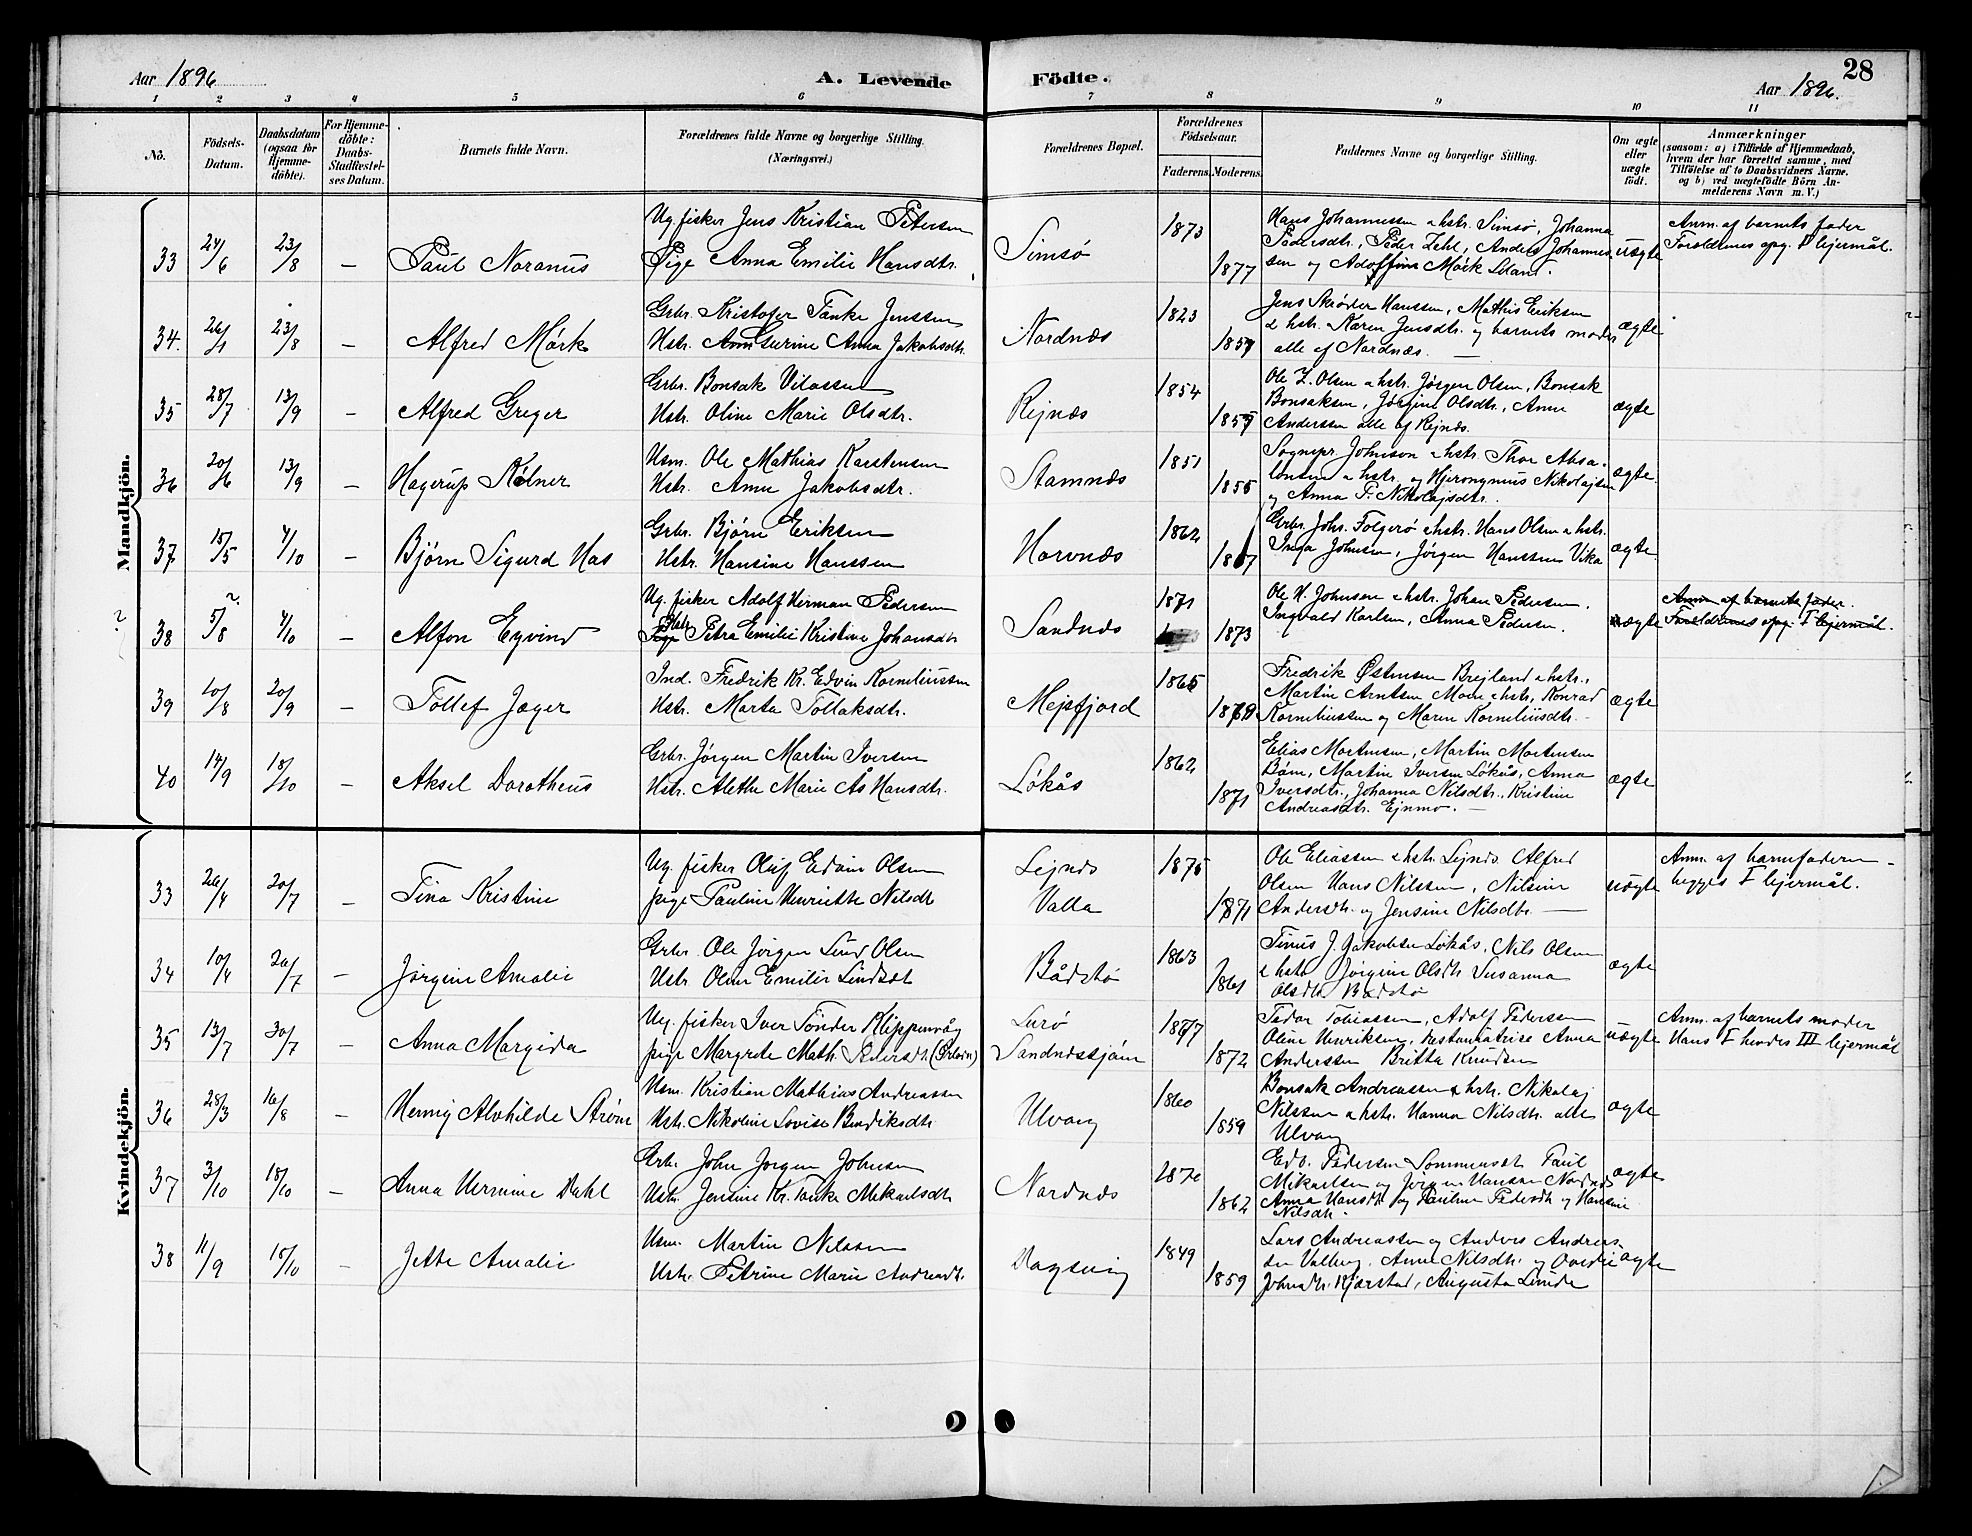 Aar 1896
A. Levende
Födte.
28
Aar 1896.
1 2 3 4 5 6 7 8 9 10 11
No.
Födsels-Datum.
Daabsdatum (ogsaa for Hjemme-döbte).
For Hjemme-döbte: Daabs-Stadfæstel-ses Datum.
Barnets fulde Navn.
Forældrenes fulde Navne og borgerlige Stilling.
(Næringsvei.)
Forældrenes Bopæl.
Forældrenes Födselsaar.
Faderens. Moderens.
Faddernes Navne og borgerlige Stilling.
Om ægte eller uægte födt.
Anmærkninger
(saasom: a) i Tilfælde af Hjemmedaab,
hvem der har forrettet samme, med
Tilföielse af to Daabsvidners Navne.
og b) ved uægtefödte Börn An-
melderens Navn m. V.)
Mandkjön.
33 24/6 23/8 – Paul Noranus
Ug. fisker Jens Kristian Petersen
Pige Anna Emilie Hansdtr.
Simsø
1873
1877
Hans Johannessen & hstr. Simsø, Johanna
Pedersdtr., Peder Zahl, Anders Johannes-
sen og Adolfine Mörk
uægte
Anm. af barnets fader
Forældrenes opg. I lejermål.
34. 26/1 23/8 – Alfred Mörk
Grbr. Kristofer Tanke Jenssen
Hstr. Anna Jakobsdtr.
Nordnæs
1823
1857
Jens Skrøder Hanssen, Mathis Eriksen
& hstr. Karen Jensdtr. og barnets moder
alle af Nordnæs. –
ægte
35 28/7 13/9 – Alfred Greger
Grbr. Bonsak Vilassen
Hstr. Oline Marie Olsdtr.
Rejnæs
1854
1857
Ole Z. Olsen & hstr. Jørgen Olsen, Bonsak
Bonsaksen, Jørgine Olsdtr., Anne
Anderssen alle af Rejnæs.
ægte
36 20/6 13/9 – Hagerup Kølner
Usm. Ole Mathias Karstensen
Hstr. Anne Jakobsdtr.
Stamnæs
1851
1855
Sognepr. Johnson & hstr. Thor Absa-
lonsen & hstr. og Hjeronymus Nikolajsen
og Anna P. Nikolajsdtr.
ægte.
37 15/5 4/10 – Bjørn Sigurd Has
Grbr. Bjørn Eriksen
Hstr. Hansine Hanssen
Horvnæs
1862
1867
Grbr. Johs. Folgerø & hstr. Hans Olsen & hstr.
Inga Johnsen, Jørgen Hanssen Vika
ægte
?
38 5/8 ? 4/10 – Alfon Eyvind
Ug. fisker Adolf Herman Pedersen
Pige Petra Emilie Kristine Johansdtr
Sandnæs
1871
1873
Ole H. Johnsen & hstr. Johan Pedersen.
Ingvald Karlsen, Anna Pedersen.
ægte
Anm. af barnets fader.
Forældrenes opg. I lejermål.
39 10/8 20/9 – Tollef Jæger
Ind. Fredrik Kr. Edvin Korneliussen
Hstr. Marta Tollaksdtr.
Mejsfjord
1865
1879
Fredrik Østensen Brejland & hstr.,
Martin Arntsen Moen & hstr., Konrad
Korneliussen og Maren Korneliusdtr.
ægte
40 14/9 18/10 – Aksel Dorotheus
Grbr. Jörgen Martin Iversen
Hstr. Alethe Marie Ås Hansdtr.
Lökås
1862
1871
Elias Mortensen, Martin Mortensen
Bøen, Martin Iversen Lökås, Anna
Iversdtr., Johanna Nilsdtr., Kristine
Andreasdtr. Ejnmo. –
ægte
Kvindekjön.
33 26/4 20/7 – Tina Kristine
Ug. fisker Oluf Edvin Olsen
pige Pauline Henriette Nilsdtr
Lejnæs
Valla
1875
1871
Ole Eliassen & hstr. Lejnæs Alfred
Olsen Hans Nilssen, Nilsine
Andersdtr. og Jensine Nilsdtr. –
uægte
Anm. af barnefaderen –
begges I lejermål.
34 10/4 26/7 – Jørgine Amalie
Grbr. Ole Jörgen Lund Olsen
Hstr. Oline Emilie Lindsdt
Bådstø
1863
1861
Tinus J. Jakobsen Løkås. Nils Olsen
& hstr. Jørgine Olsdtr Susanna
Olsdtr Bådstø
ægte
35 13/7 30/7 – Anna Margida
Ug. fisker Iver Tønder Klippenvåg
pige Margrete Math. Pedersdtr
Lurö
Sandnæssjøen
1877
1872
Peder Tobiassen, Adolf Pedersen
Oline Henriksen, restauratrise Anna
Anderssen Britta Knudsen
uægte
Anm. af barnets moder
Hans I hendes III lejermål
36 28/3 16/8 – Henny Alvhilde Strøm
Usm. Kristian Mathias Andreassen
Hstr. Nikoline Lovise Bendiksdtr
Ulvang
1860
1859
Bonsak Andreassen & hstr. Nikolaj
Nilssen & hstr. Hanna Nilsdtr. alle
Ulvang
ægte
37 3/10 18/10 – Anna Hermine Dahl
Grbr. John Jørgen Johnsen
Hstr. Jensine Kr. Tanke Mikaelsdtr
Nordnæs
1870
1862
Edv. Pedersen Sommersdt Paul
Mikaelsen og Jørgen Hanssen Nordnæs
Anna Hansdtr og Pauline Pedersdtr og Hansine
Nilsdtr.
ægte
38 11/9 18/10 – Jette Amalie
Usm. Martin Nilssen
Hstr. Petrine Marie Andreasdtr.
Dagsvig
1849
1859
Lars Andreassen og Anders Andreas-
sen Valberg, Anne Nilsdtr. og Ovedie
Johnsdtr. Kjærstad, Augusta Lunde
ægte